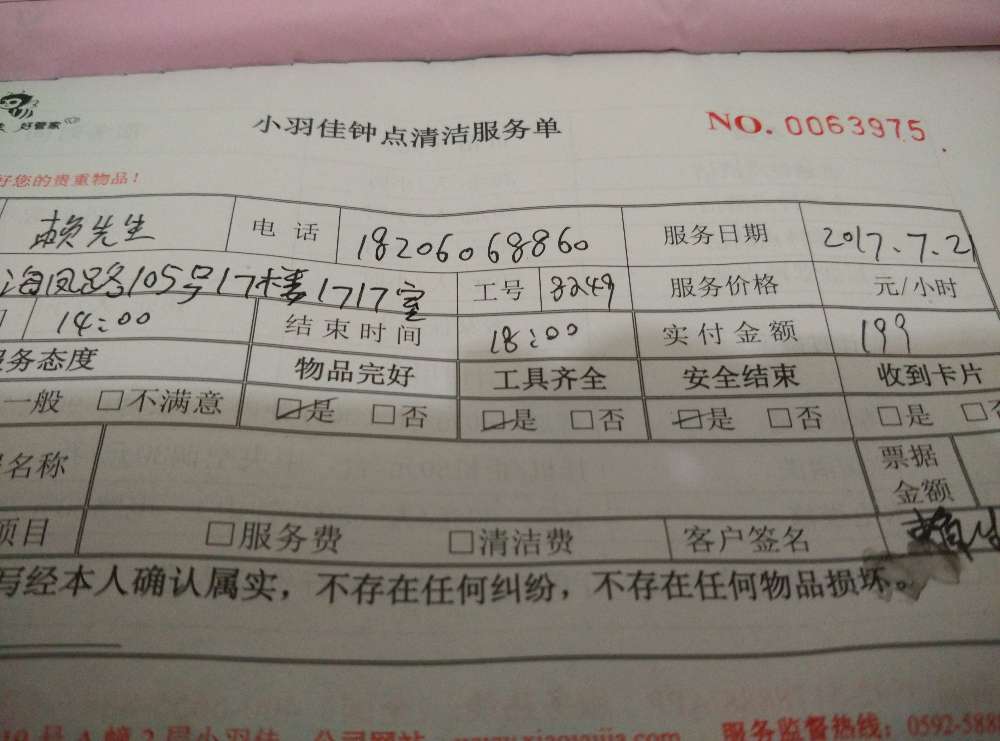 好管家
小羽佳钟点清洁服务单 NO. 0063975
好您的贵重物品!
赖先生 电话 18206068860 服务日期 2017.7.2
海凤路105号17楼1717室 工号 8249 服务价格 元/小时
14:00 结束时间 18:00 实付金额 199
服务态度 物品完好 工具齐全 安全结束 收到卡片
一般 □不满意 ☑是 □否 ☑是 □否 ☑是 □否 □是 □否
名称 票据金额
项目 □服务费 □清洁费 客户签名
写经本人确认属实,不存在任何纠纷,不存在任何物品损坏。
号A幢2层小羽佳 公司网站:www.xiaoyujia.com 服务监督热线:0592-588